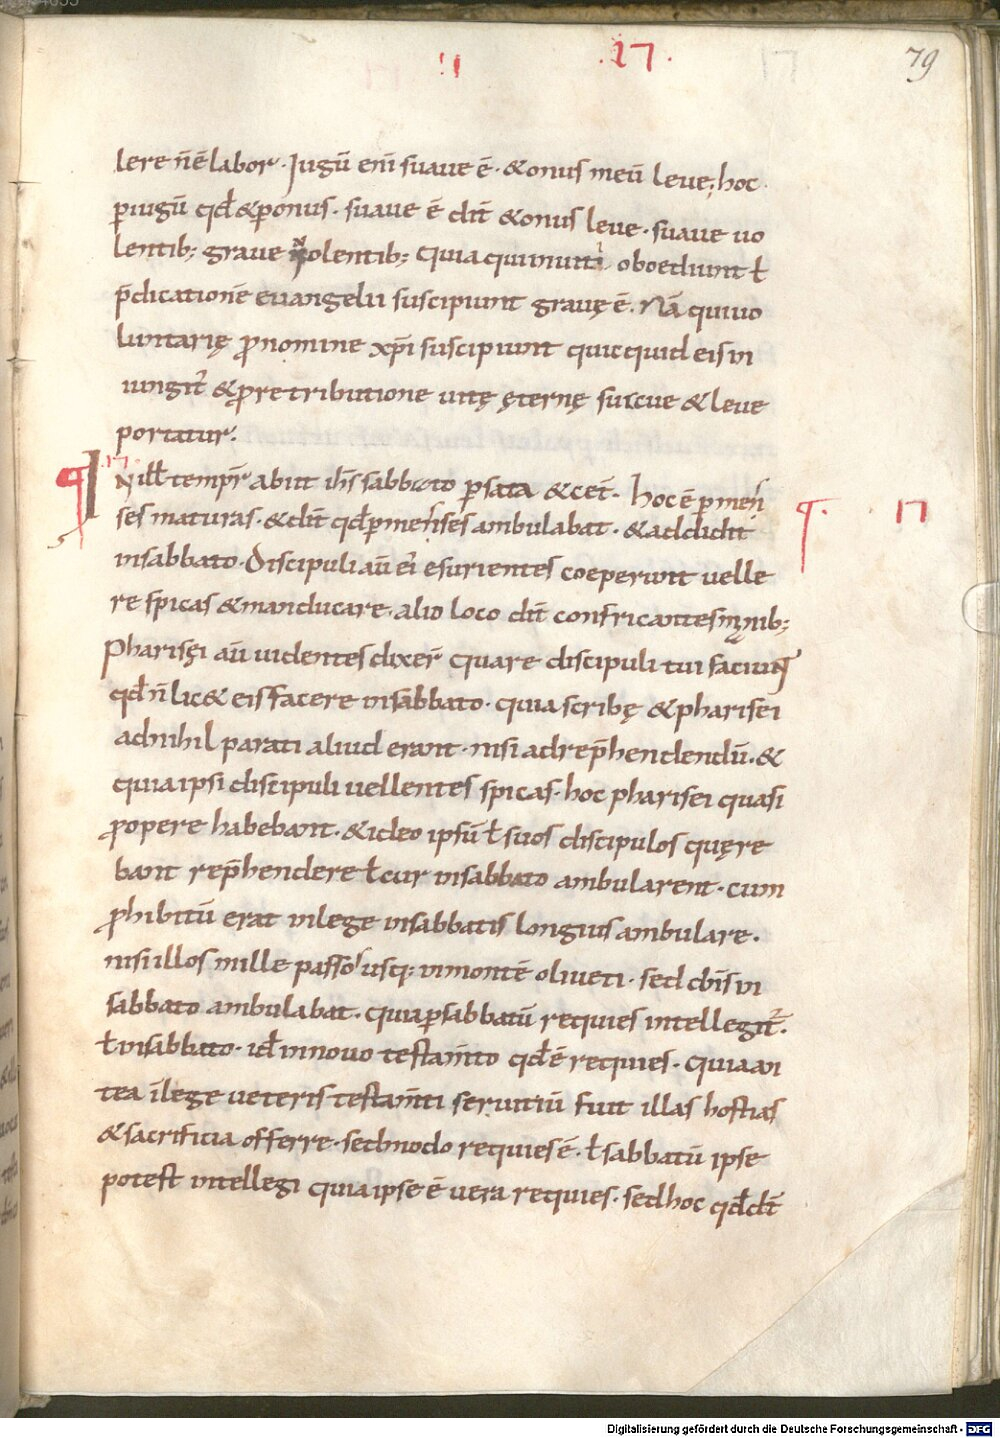 !1 .17. 79
lere n̄ ē labor · Jugū enī suaue ē · & onus meū leue; hoc
ꝑ iugū qđ & ꝑ onus · suaue ē dic̄ & onus leue · suaue uo
lentib; graue Nolentib; Quia qui inuiti oboediunt ł
p̄dicationē euangelii suscipiunt grauę ē. Nā qui uo
luntarię ꝓ nomine xp̄i suscipiunt quicquid eis in
iungit̄ & ꝓ retributione uitę ęternę suaue & leue
portatur.
¶ 17 IN iłł temp̄r abiit ih̄s sabbato ꝑ sata & cet̄. hoc ē ꝑ mes
ses maturas · & dic̄ qđ ꝑ messes ambulabat · & addidit
in sabbato · Discipuli aū ei esurientes coeperunt uelle
¶ · 17
re spicas & manducare · alio loco dic̄ confricantes manib;
Pharisęi aū uidentes dixer̄ Quare discipuli tui faciunt
qđ n̄ lic& eis facere in sabbato · quia scribę & pharisei
ad nihil parati aliud erant · nisi ad rep̄hendendū. &
quia ipsi discipuli uellentes spicas · hoc pharisei quasi
ꝓ opere habebant · & ideo ipsū ł suos discipulos quęre
bant rep̄hendere ł cur in sabbato ambularent · cum
ꝓhibitū erat in lege in sabbatis longius ambulare.
nisi illos mille passos usq; in montē oliueti · sed dn̄s in
sabbato ambulabat · Quia ꝑ sabbatū requies intellegit̄.
ł in sabbato · id in nouo testam̄to qđ ē requies · Quia an
tea in lege ueteris testam̄ti seruitiū fuit illas hostias
& sacrificia offerre · sed modo requies ē · ł sabbatū ipse
potest intellegi quia ipse ē uera requies · sed hoc qđ dic̄
Digitalisierung gefördert durch die Deutsche Forschungsgemeinschaft - DFG